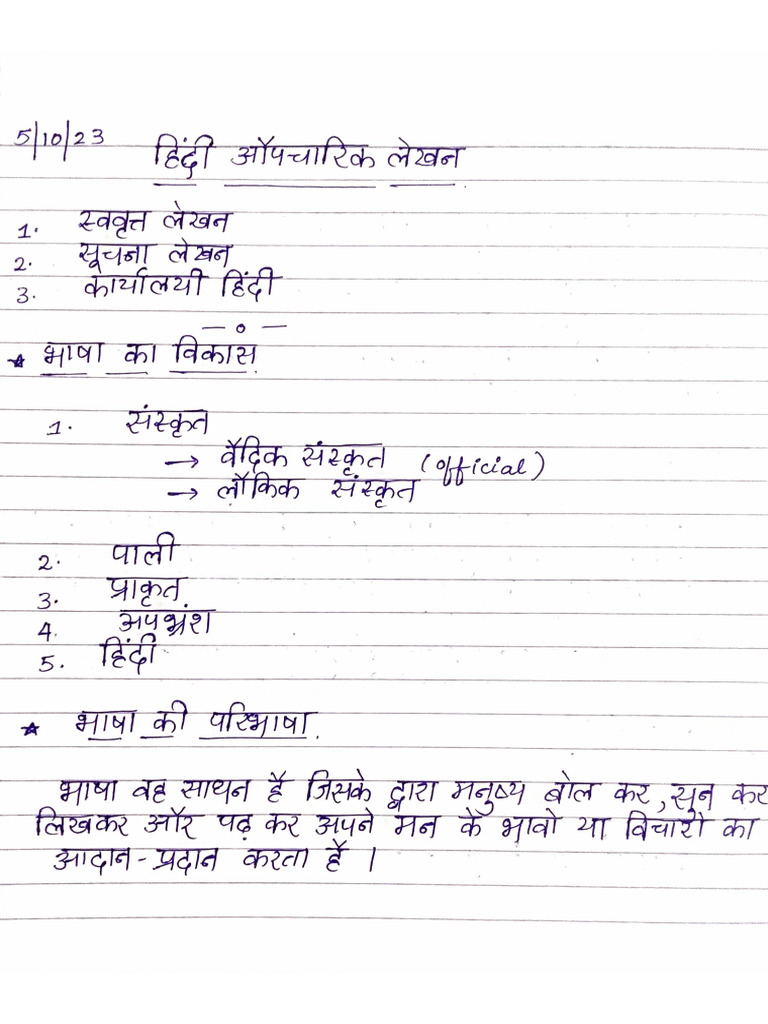 5/10/23 हिंदी औपचारिक लेखन
1. स्ववृत्त लेखन
2. सूचना लेखन
3. कार्यालयी हिंदी
—०—
* भाषा का विकास
1. संस्कृत
→ वैदिक संस्कृत (official)
→ लौकिक संस्कृत
2. पाली
3. प्राकृत
4. अपभ्रंश
5. हिंदी
* भाषा की परिभाषा
भाषा वह साधन है जिसके द्वारा मनुष्य बोल कर, सुन कर
लिखकर और पढ़ कर अपने मन के भावो या विचारो का
आदान-प्रदान करता है।